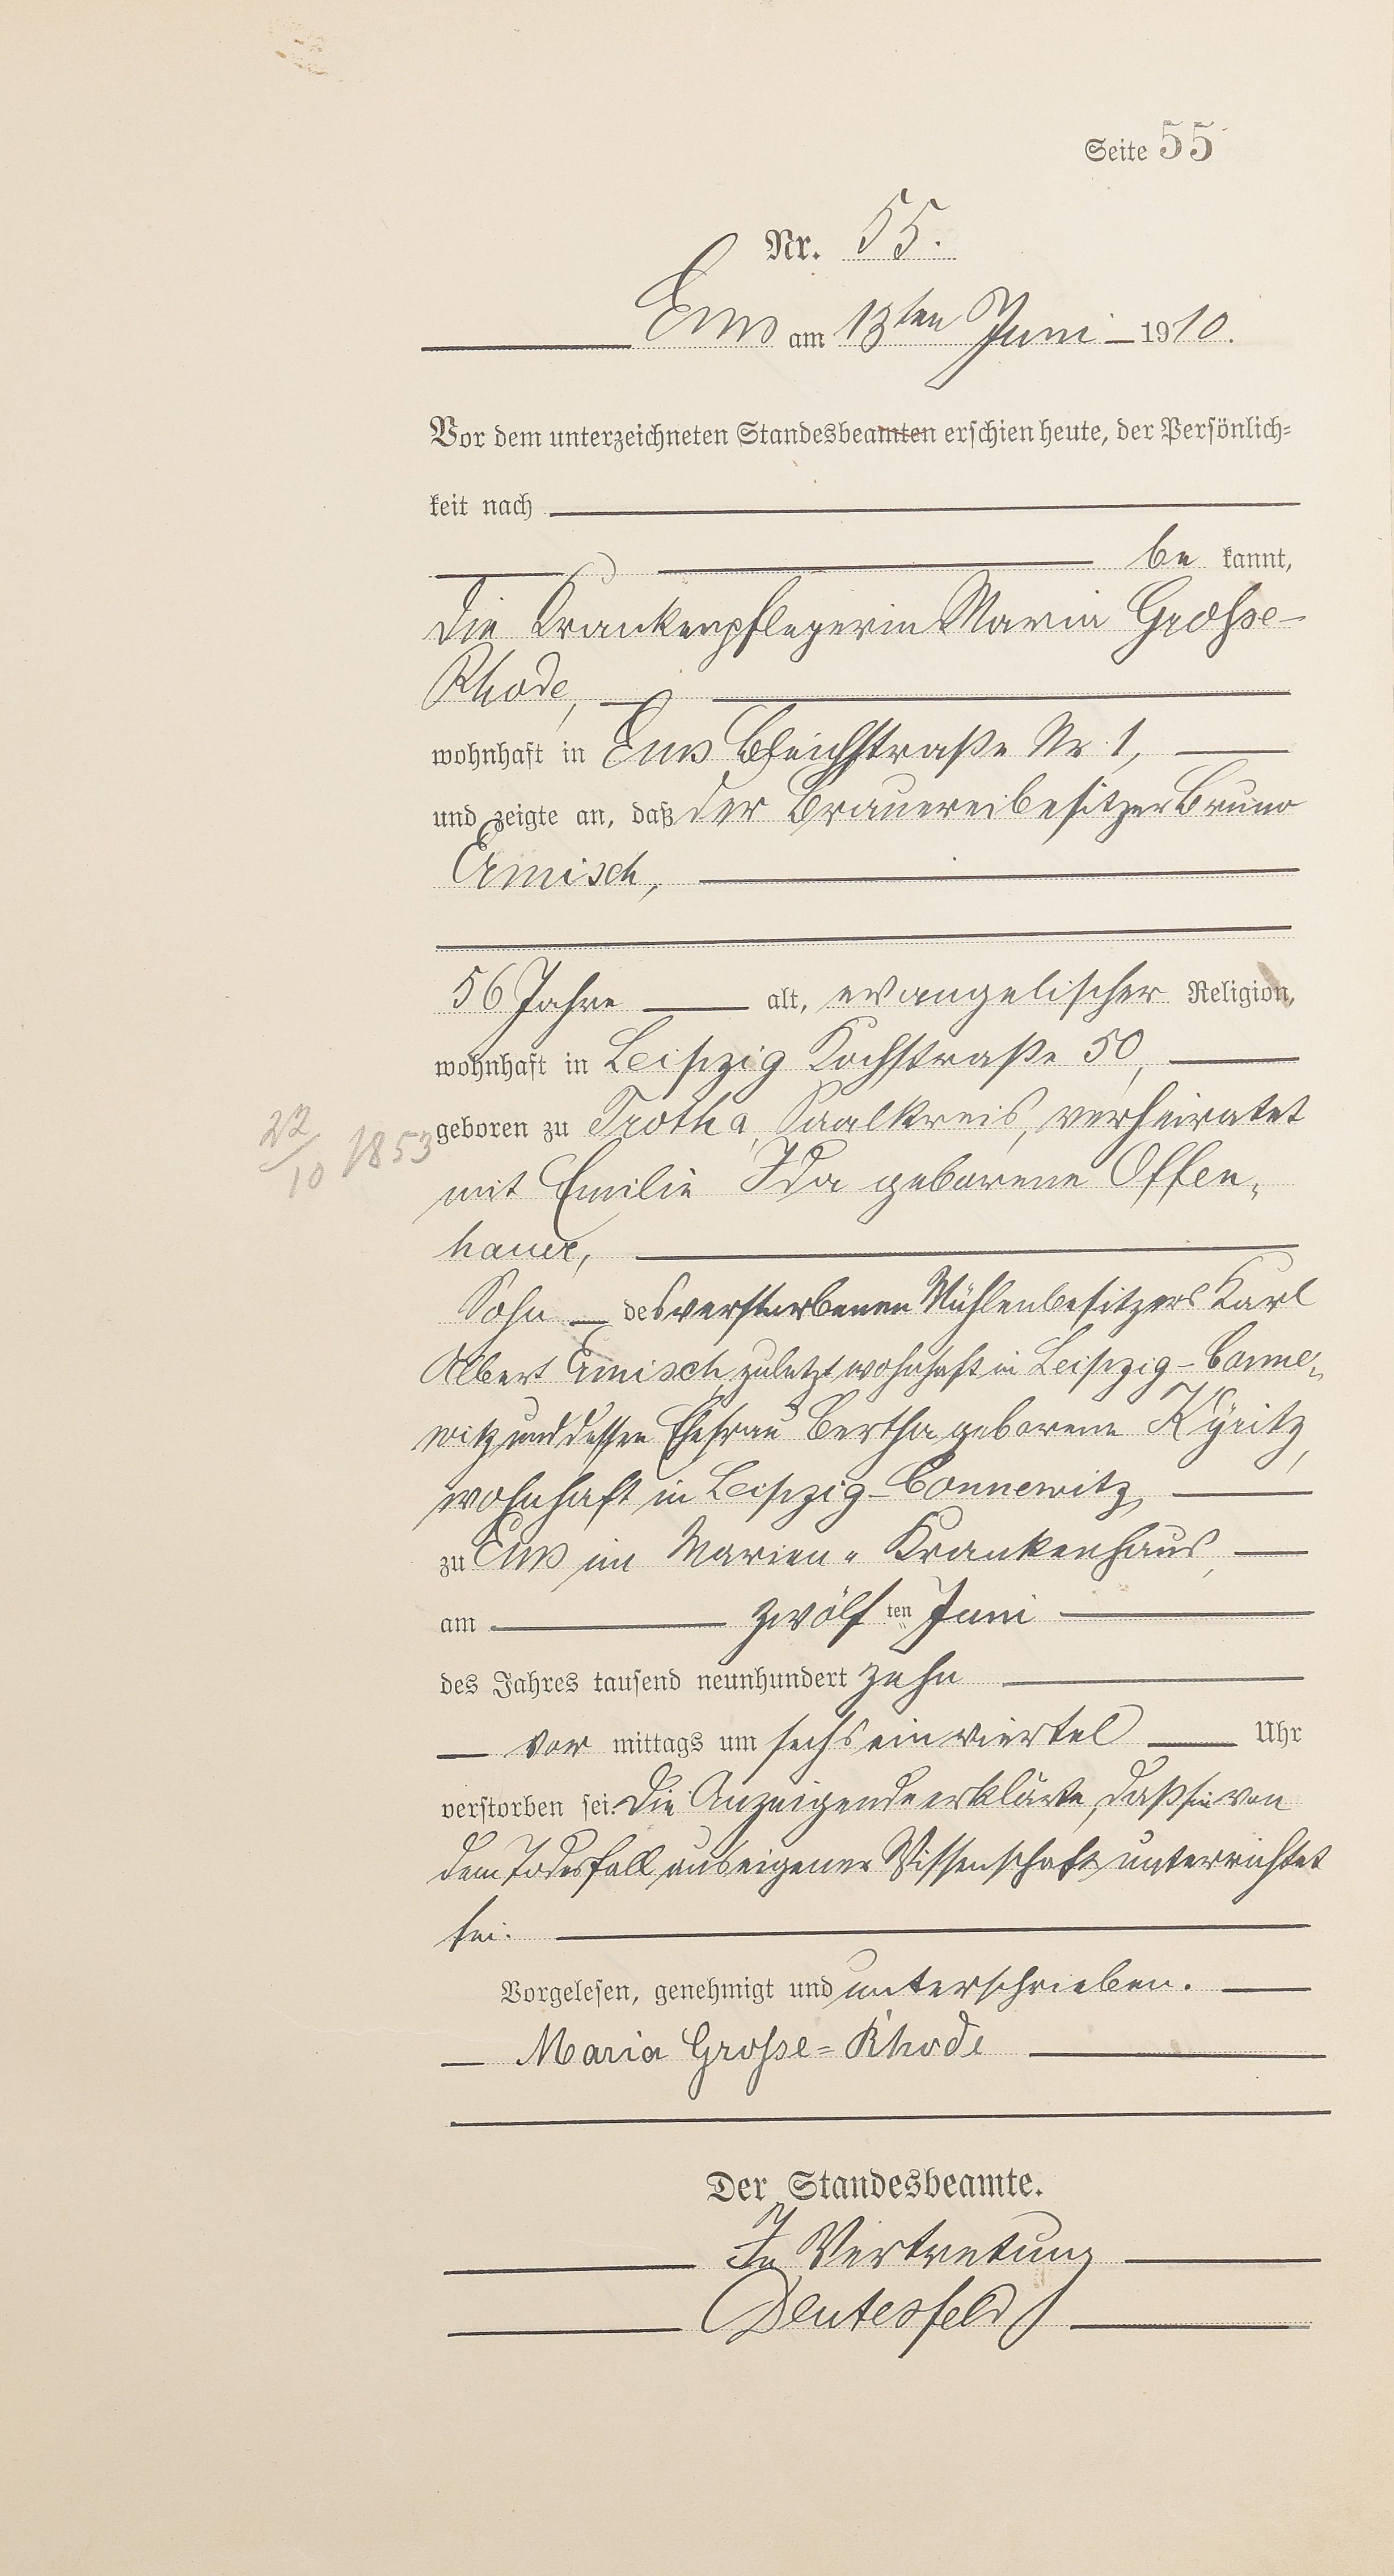 Seite 55
Nr. 55.
Ems am 13ten Juni 1910.
Vor dem unterzeichneten Standesbeamten erschien heute, der Persönlich-
keit nach
be kannt,
die Krankenpflegerin Maria Grosse-
Rhode,
wohnhaft in Ems Bleichstraße Nr 1,
und zeigte an, daß der Brauereibesitzer Bruno
Ermisch,
56 Jahre alt, evangelischer Religion,
wohnhaft in Leipzig Kochstraße 50,
geboren zu Trotha, Saalkreis, verheiratet
22/10 1853
mit Emilie Ida geborene Offen-
hauer,
Sohn des verstorbenen Mühlenbesitzers Karl
Albert Ermisch, zuletzt wohnhaft in Leipzig-Conne-
witz und dessen Ehefrau Bertha geborene Kyritz,
wohnhaft in Leipzig-Connewitz,
zu Ems im Marien-Krankenhaus,
am zwölf ten Juni
des Jahres tausend neunhundert zehn
vor mittags um sechs ein viertel Uhr
verstorben sei. Die Anzeigende erklärte, daß sie von
dem Todesfall aus eigener Wissenschaft unterrichtet
sei.
Vorgelesen, genehmigt und unterschrieben.
Maria Grosse-Rhode
Der Standesbeamte.
In Vertretung
Deutesfeld